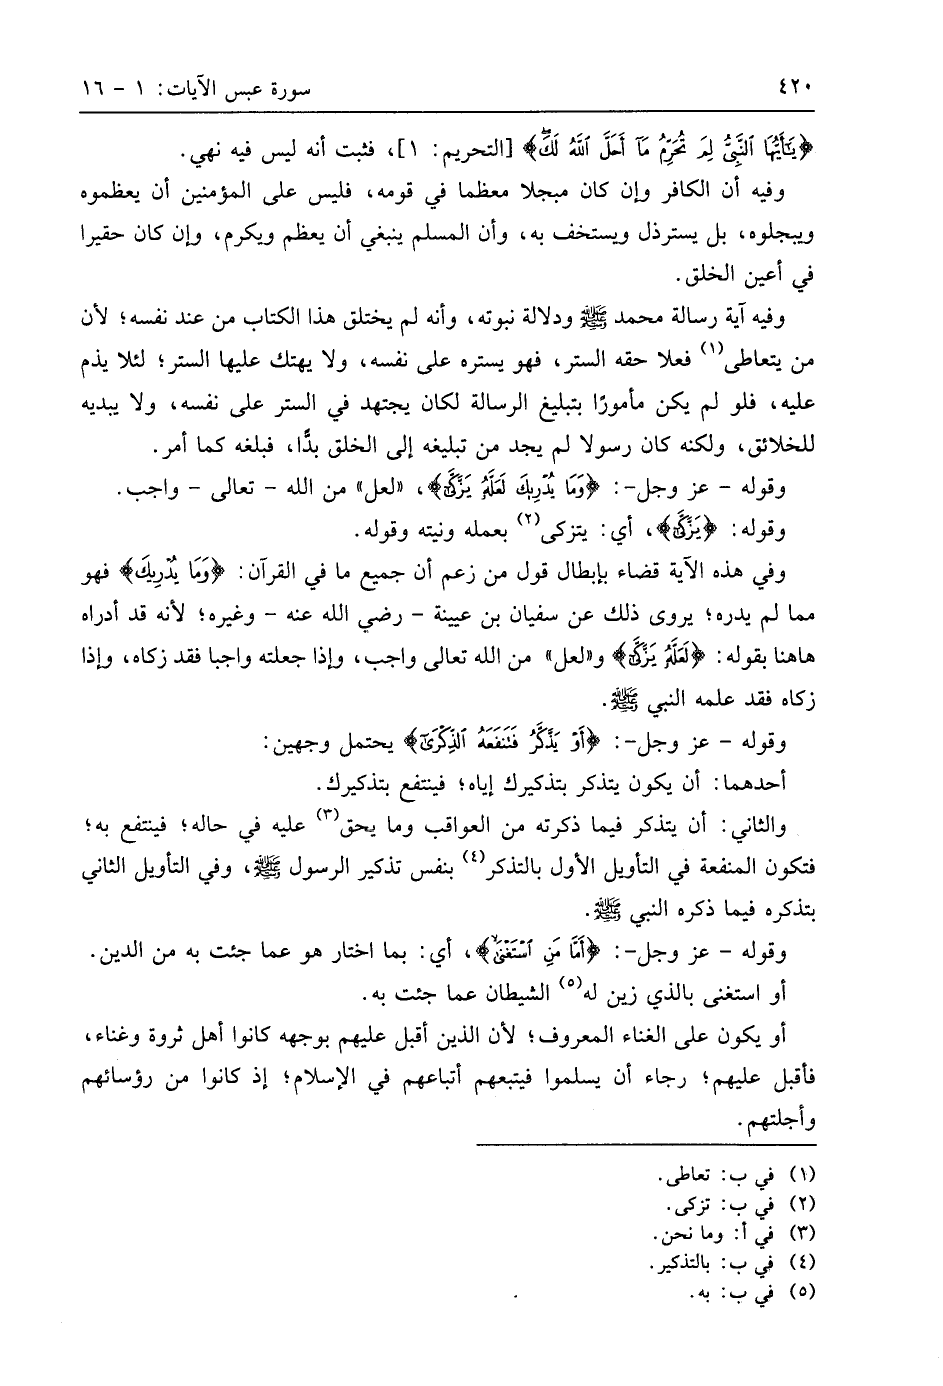 ٤٢٠ سورة عبس الآيات: ١ - ١٦
﴿يَٰٓأَيُّهَا ٱلنَّبِىُّ لِمَ تُحَرِّمُ مَآ أَحَلَّ ٱللَّهُ لَكَۖ﴾ [التحريم: ١]، فثبت أنه ليس فيه نهي.
وفيه أن الكافر وإن كان مبجلا معظما في قومه، فليس على المؤمنين أن يعظموه
ويبجلوه، بل يسترذل ويستخف به، وأن المسلم ينبغي أن يعظم ويكرم، وإن كان حقيرا
في أعين الخلق.
وفيه آية رسالة محمد ﷺ ودلالة نبوته، وأنه لم يختلق هذا الكتاب من عند نفسه؛ لأن
من يتعاطى(١) فعلا حقه الستر، فهو يستره على نفسه، ولا يهتك عليها الستر؛ لئلا يذم
عليه، فلو لم يكن مأمورًا بتبليغ الرسالة لكان يجتهد في الستر على نفسه، ولا يبديه
للخلائق، ولكنه كان رسولا لم يجد من تبليغه إلى الخلق بدًّا، فبلغه كما أمر.
وقوله - عز وجل-: ﴿وَمَا يُدْرِيكَ لَعَلَّهُۥ يَزَّكَّىٰٓ﴾، «لعل» من الله - تعالى - واجب.
وقوله: ﴿يَزَّكَّىٰٓ﴾، أي: يتزكى(٢) بعمله ونيته وقوله.
وفي هذه الآية قضاء بإبطال قول من زعم أن جميع ما في القرآن: ﴿وَمَا يُدْرِيكَ﴾ فهو
مما لم يدره؛ يروى ذلك عن سفيان بن عيينة - رضي الله عنه - وغيره؛ لأنه قد أدراه
هاهنا بقوله: ﴿لَعَلَّهُۥ يَزَّكَّىٰٓ﴾ و«لعل» من الله تعالى واجب، وإذا جعلته واجبا فقد زكاه، وإذا
زكاه فقد علمه النبي ﷺ.
وقوله - عز وجل-: ﴿أَوْ يَذَّكَّرُ فَتَنفَعَهُ ٱلذِّكْرَىٰٓ﴾ يحتمل وجهين:
أحدهما: أن يكون يتذكر بتذكيرك إياه؛ فينتفع بتذكيرك.
والثاني: أن يتذكر فيما ذكرته من العواقب وما يحق(٣) عليه في حاله؛ فينتفع به؛
فتكون المنفعة في التأويل الأول بالتذكر(٤) بنفس تذكير الرسول ﷺ، وفي التأويل الثاني
بتذكره فيما ذكره النبي ﷺ.
وقوله - عز وجل-: ﴿أَمَّا مَنِ ٱسْتَغْنَىٰ﴾، أي: بما اختار هو عما جئت به من الدين.
أو استغنى بالذي زين له(٥) الشيطان عما جئت به.
أو يكون على الغناء المعروف؛ لأن الذين أقبل عليهم بوجهه كانوا أهل ثروة وغناء،
فأقبل عليهم؛ رجاء أن يسلموا فيتبعهم أتباعهم في الإسلام؛ إذ كانوا من رؤسائهم
وأجلتهم.
(١) في ب: تعاطى.
(٢) في ب: تزكى.
(٣) في أ: وما نحن.
(٤) في ب: بالتذكير.
(٥) في ب: به.